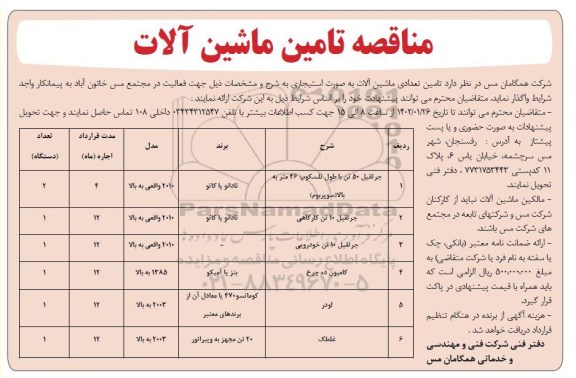 مناقصه تامین ماشین آلات
شرکت همگامان مس در نظر دارد تامین تعدادی ماشین آلات به صورت استیجاری به شرح و مشخصات ذیل جهت فعالیت در مجتمع مس خاتون آباد به پیمانکار واجد
شرایط واگذار نماید، متقاضیان محترم می توانند پیشنهادت خود را بر اساس شرایط ذیل به این شرکت ارائه نمایند :
- متقاضیان محترم می توانند تا تاریخ ۱۴۰۲/۰۱/۲۶ از ساعت ۸ الی ۱۵ جهت کسب اطلاعات بیشتر با تلفن ۰۳۴۳۴۳۱۲۵۴۷ داخلی ۱۰۸ تماس حاصل نمایند و جهت تحویل
پیشنهادات به صورت حضوری و یا پست
پیشتاز به آدرس : رفسنجان، شهر
مس سرچشمه، خیابان یاس ۶، پلاک
۱۱ کدپستی ۷۷۳۱۷۵۳۴۴۳ ، دفتر فنی
تحویل نمایند.
- مالکین ماشین آلات نباید از کارکنان
شرکت مس و شرکتهای تابعه در مجتمع
های شرکت مس باشند.
- ارائه ضمانت نامه معتبر (بانکی، چک
یا سفته به نام فرد یا شرکت متقاضی) به
مبلغ ۵۰۰,۰۰۰,۰۰۰ ریال الزامی است که
باید همراه با قیمت پیشنهادی در پاکت
قرار گیرد.
- هزینه آگهی از برنده در هنگام تنظیم
قرارداد دریافت خواهد شد .
دفتر فنی شرکت فنی و مهندسی
و خدماتی همگامان مس
ردیف شرح برند مدل مدت قرارداد اجاره (ماه) تعداد (دستگاه)
۱ جرثقیل ۵۰ تن با طول تلسکوپ ۴۶ متر به بالا(سوپربوم) تادانو یا کاتو ۲۰۱۰ واقعی به بالا ۴ ۲
۲ جرثقیل ۱۰ تن کارگاهی تادانو یا کاتو ۲۰۱۰ واقعی به بالا ۱۲ ۱
۳ جرثقیل ۱۰ تن خودرویی - ۲۰۱۰ واقعی به بالا ۱۲ ۱
۴ کامیون ده چرخ بنز یا آمیکو ۱۳۸۵ به بالا ۱۲ ۱
۵ لودر کوماتسو۴۷۰ یا معادل آن از برندهای معتبر ۲۰۰۳ به بالا ۱۲ ۱
۶ غلطک ۲۰ تن مجهز به ویبراتور ۲۰۰۳ به بالا ۱۲ ۱
ParsNamadData
پایگاه اطلاع رسانی مناقصه و مزایده
۰۲۱-۸۸۳۴۹۶۷۰-۵